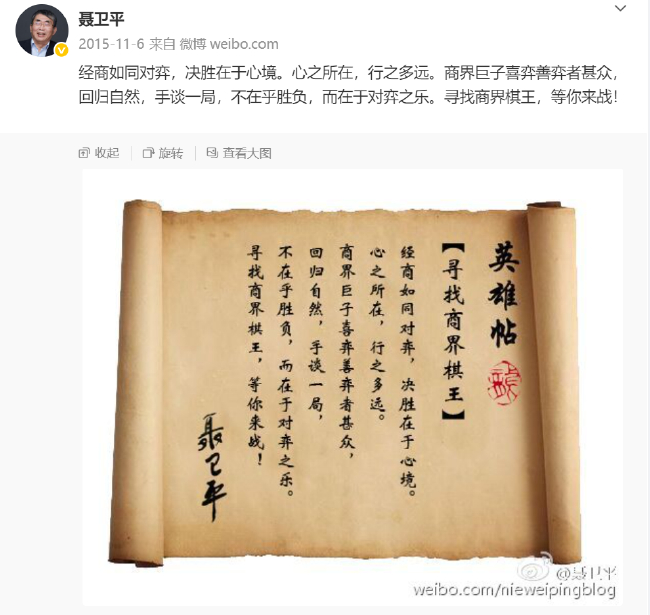 聂卫平
2015-11-6 来自 微博 weibo.com
经商如同对弈，决胜在于心境。心之所在，行之多远。商界巨子喜弈善弈者甚众，
回归自然，手谈一局，不在乎胜负，而在于对弈之乐。寻找商界棋王，等你来战！
收起 旋转 查看大图
英雄帖
【寻找商界棋王】
经商如同对弈，决胜在于心境。
心之所在，行之多远。
商界巨子喜弈善弈者甚众，
回归自然，手谈一局，
不在乎胜负，而在于对弈之乐。
寻找商界棋王，等你来战！
聂卫平
@聂卫平
weibo.com/nieweipingblog